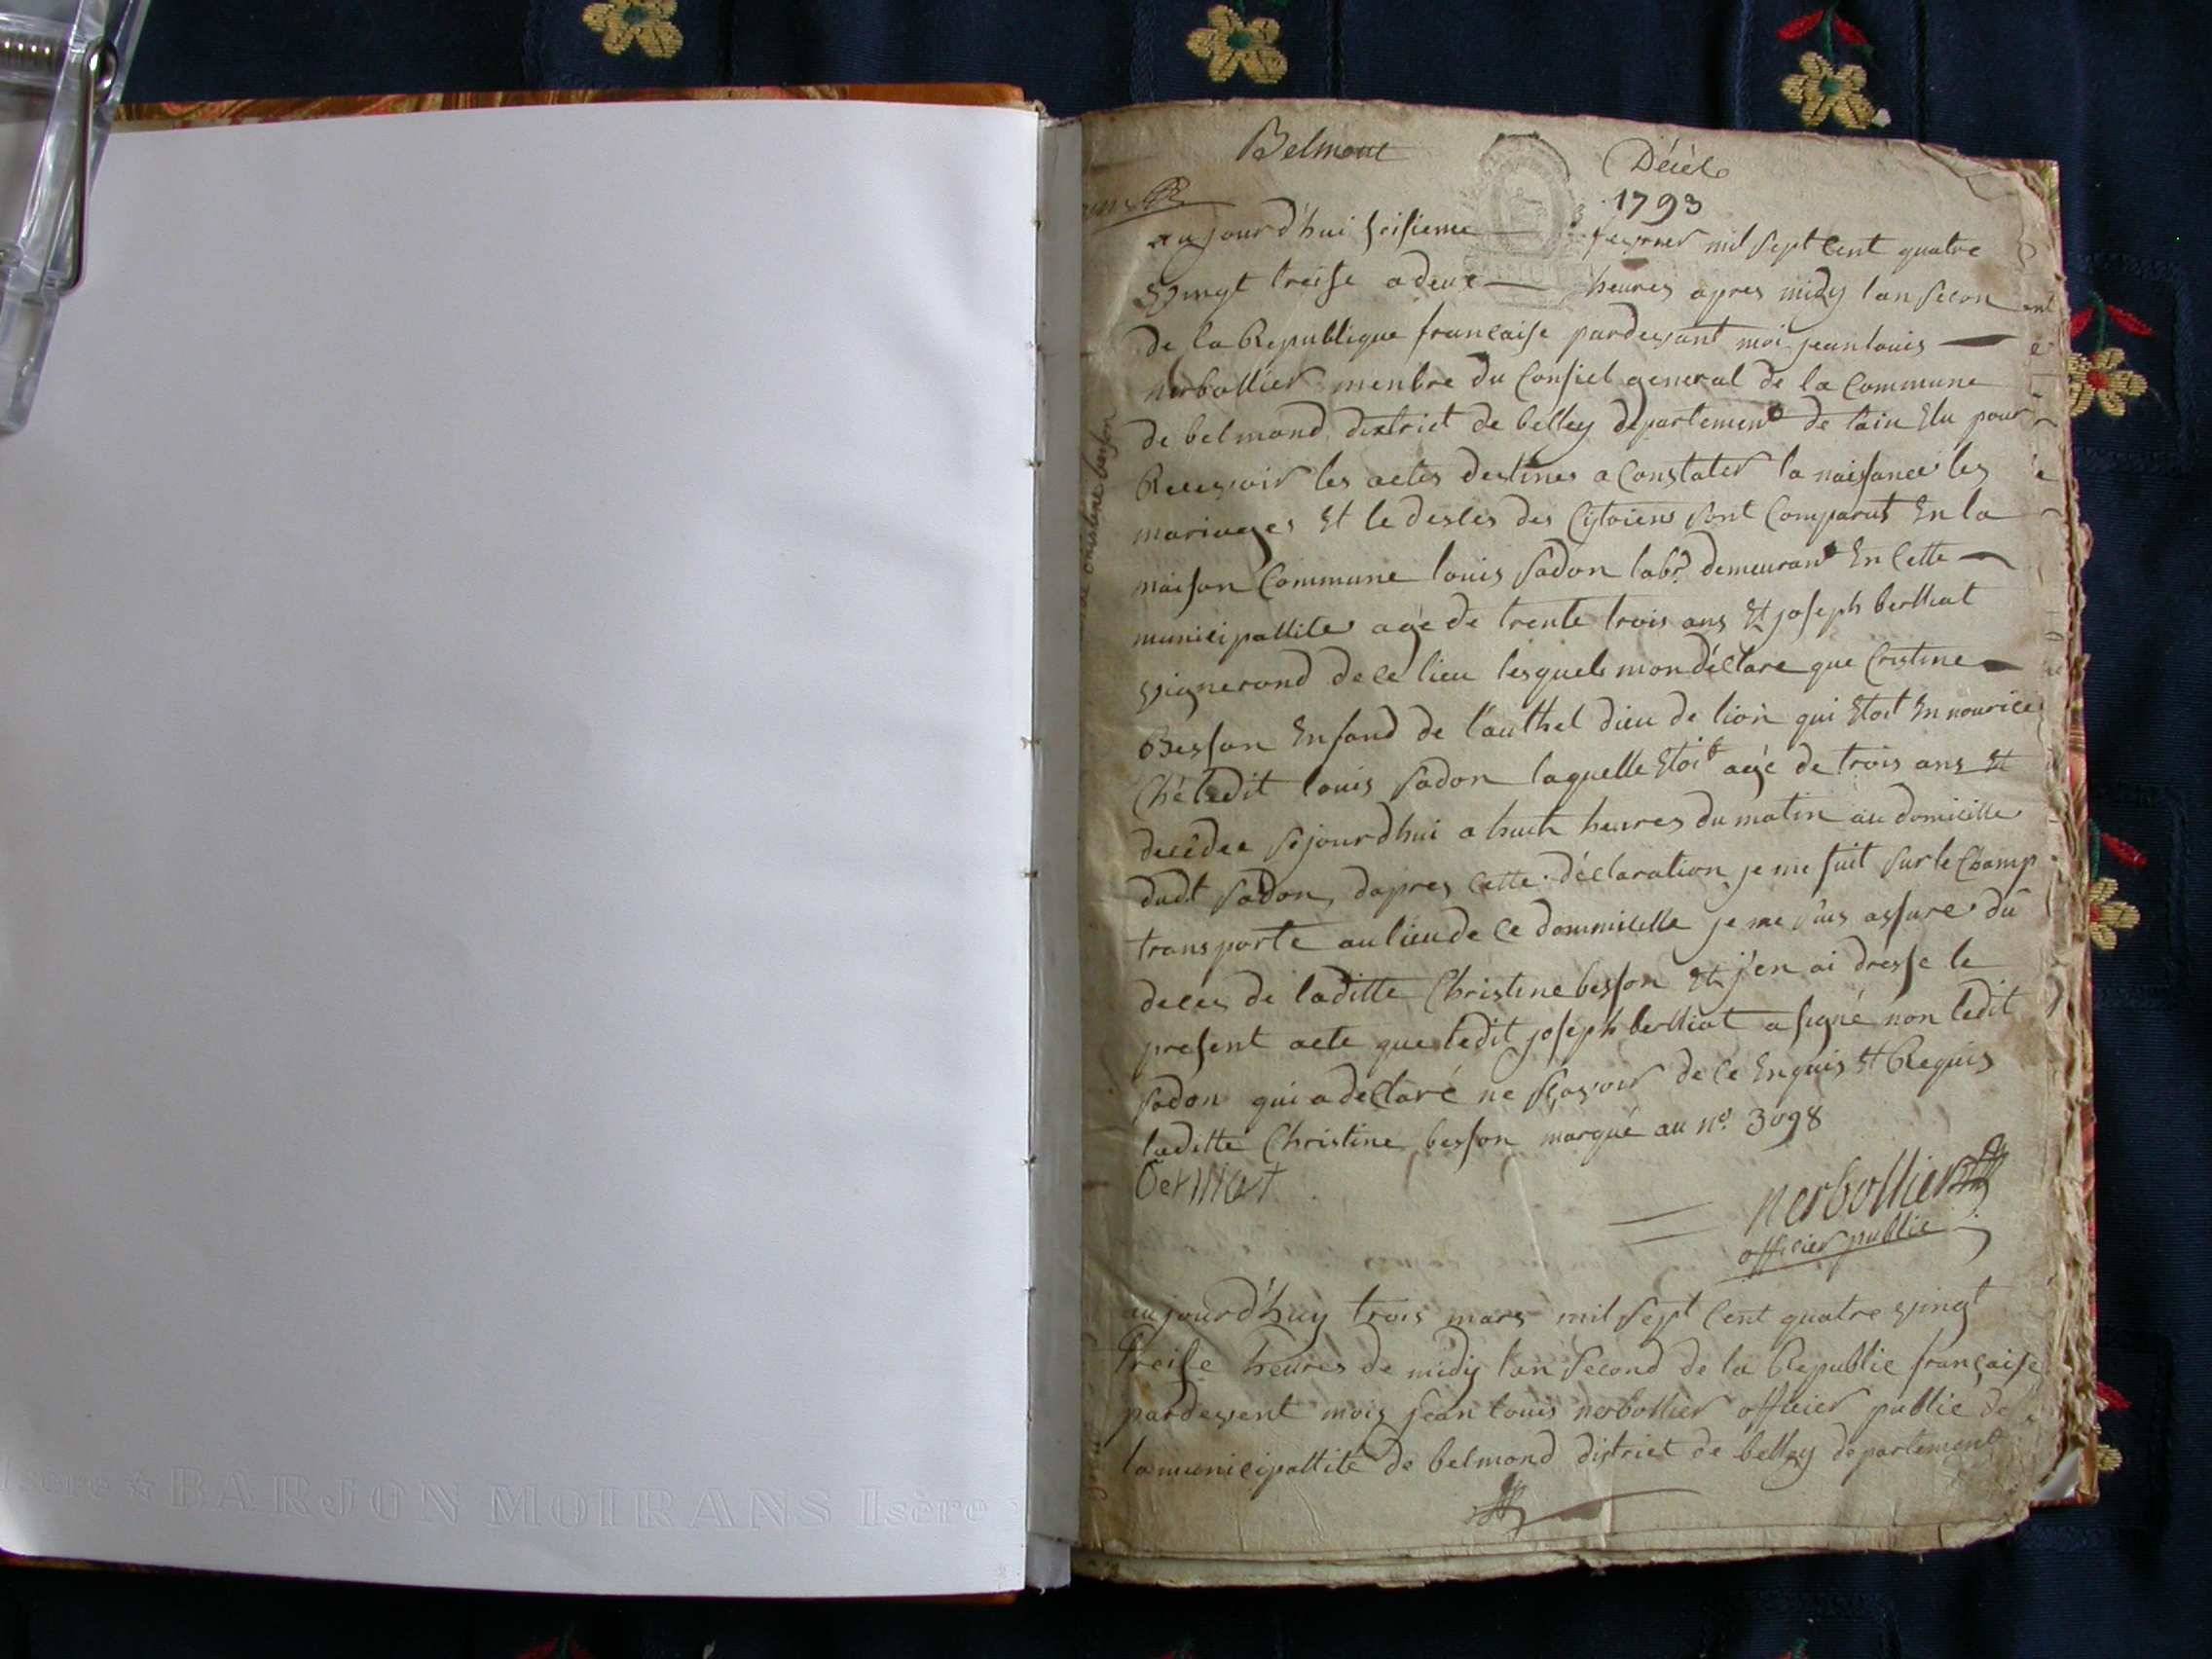 Belmont
Décès
1793
aujourd'hui seisieme fevrier mil sept cent quatre
vingt treise a deux heures apres midy l'an secon
de la Republique francaise pardevant moi jean louis
nerbollier menbre du Consiel general de la Commune
de belmond district de belley departement de lain Elu pour
Recevoir les actes destines a Constater la naissance les
mariages Et le desces des Cytoiens sont Comparut En la
maison Commune louis sadon labr demeurant En Cette
municipallite agé de trente trois ans Et joseph berlliat
vignerond de ce lieu lesquels mon déclare que Cristine
Besson Enfand de l'authel dieu de lion qui Etoit En nourice
Ché ledit louis sadon laquelle Etoit agé de trois ans Et
decédee sejourdhui a huit heures du matin au domicille
dudt sadon, dapres cette déclaration je me suit sur le Champ
transporte au lieu de ce dommicille je me suis assure du
deces de laditte Christine besson Et j'en ai dresse le
present acte que ledit joseph berlliat a signé non ledit
sadon qui a declaré ne sçavoir de ce Enquis Et Requis
laditte Christine besson marqué au n° 3098
berlliat
nerbollier
officier public
aujourd'huy trois mars mil sept cent quatre vingt
treise heures de midy l'an second de la Republic française
pardevent mois jean louis nerbollier officier public de
la municipallité de belmond district de belley departement
christine besson
BARJON MOIRANS Isère